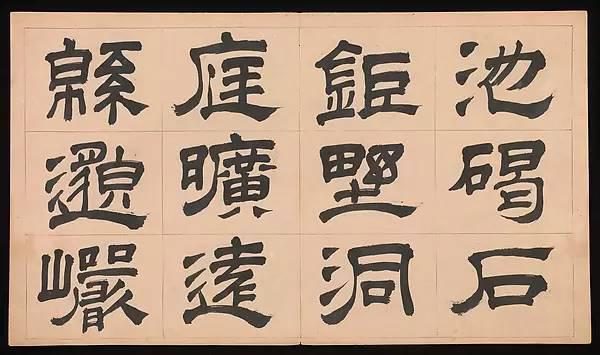 池碣石
鉅野洞
庭曠遠
緜邈巗